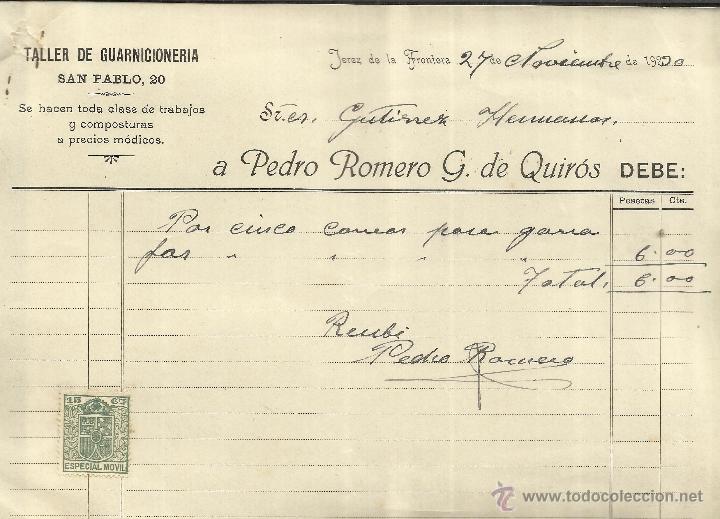 TALLER DE GUARNICIONERIA
SAN PABLO, 20
Se hacen toda clase de trabajos
y composturas
a precios módicos.
Jerez de la Frontera 27 de Noviembre de 1930
Sres. Gutierrez Hermanos.
a Pedro Romero G. de Quirós DEBE:
Pesetas Cts.
Por cinco correas para garra
fas " " " " 6.00
Total. 6.00
Recibí
Pedro Romero
15 CS
ESPECIAL MOVIL
www.todocoleccion.net